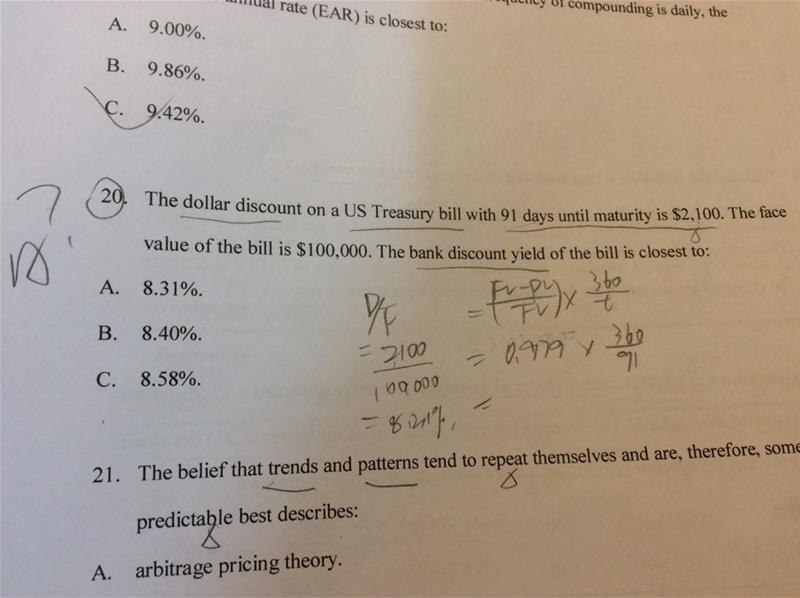 rate (EAR) is closest to:
of compounding is daily, the
A. 9.00%.
B. 9.86%.
C. 9.42%.
20. The dollar discount on a US Treasury bill with 91 days until maturity is $2,100. The face
value of the bill is $100,000. The bank discount yield of the bill is closest to:
A. 8.31%.
B. 8.40%.
C. 8.58%.
D/F
= 2,100
100,000
=
= (FV-PV/FV) × 360/t
= 0.979 × 360/91
=
21. The belief that trends and patterns tend to repeat themselves and are, therefore, some
predictable best describes:
A. arbitrage pricing theory.